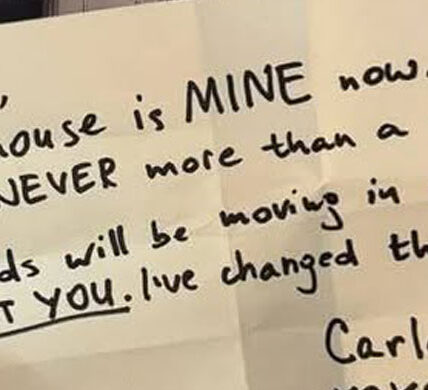 ouse is MINE now.
NEVER more than a
ds will be moving in
T YOU. I've changed th
Carl